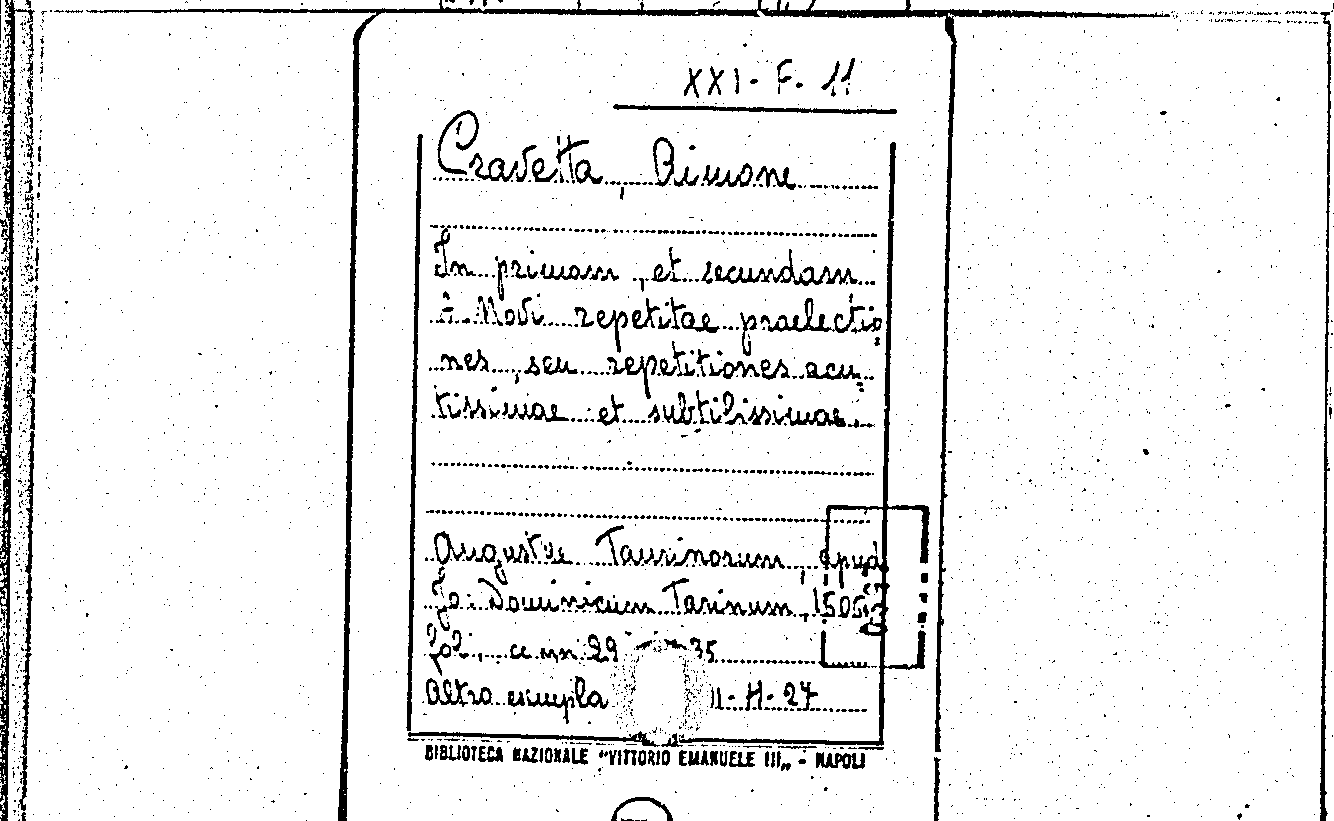 XXI - F. 11
Cravetta, Aimone
In primam, et secundam
ff. Novi repetitae praelectio
nes, seu repetitiones acu
tissimae et subtilissimae.
Augustae Taurinorum, apud
Jo: Dominicum Tarinum,
fol., cc nn 29 35
Altro esempla II - H - 27
BIBLIOTECA NAZIONALE "VITTORIO EMANUELE III„ - NAPOLI